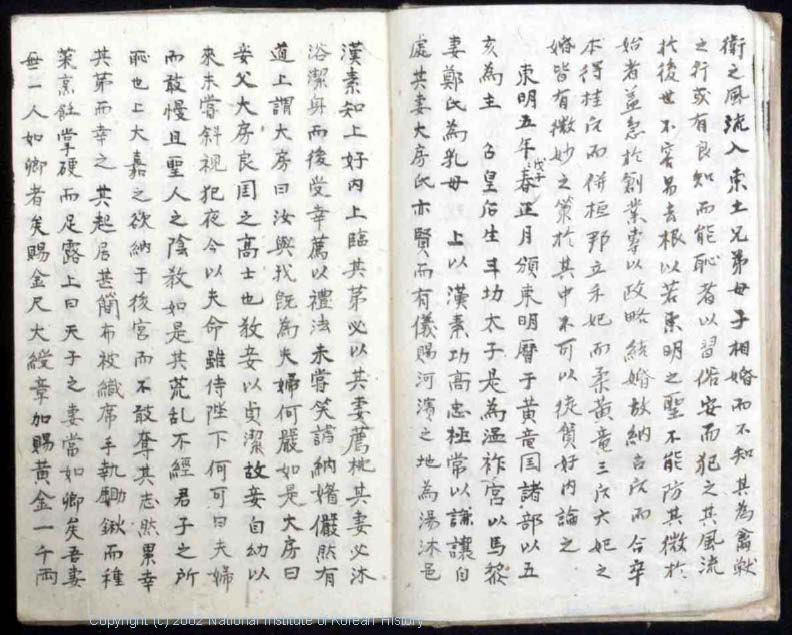 衛之風流入東土兄弟母子相婚而不知其為禽獣
之行或有良知而能恥者以習俗安而犯之其風流
於後世不容易去根以若東明之聖不能防其微於
始者盖急於創業専以政略結婚故納召戹而合卒
本得桂戹而併桓那立禾妃而柔黃竜三戹大妃之
婚皆有微妙之策於其中不可以徒貧好内論之
東明五年戊子春正月頒東明曆于黃竜国諸部以五
亥為主 召皇后生 功太子是為温祚宮以馬黎
妻鄭氏為乳母 上以漢素功高忠極常以謙讓自
處其妻大房氏亦賢而有儀賜河濱之地為湯沐邑
漢素知上好内上臨其苐必以其妻薦枕其妻必沐
浴潔身而後受幸薦以禮法未嘗笑謔納媚儼然有
道上謂大房曰汝與我旣為夫婦何嚴如是大房曰
妾父大房良国之高士也教妾以貞潔故妾自幼以
來未嘗斜視犯夜今以夫命雖侍陛下何可曰夫婦
而敢慢且聖人之陰教如是其荒乱不經君子之所
恥也上大嘉之欲納于後宮而不敢奪其志然累幸
其苐而幸之 其起居甚簡布被織席手執鋤鍬而種
菜烹飪掌硬而足露上曰天子之妻當如卿矣吾妻
無一人如卿者矣賜金尺大綬章加賜黃金一千両
Copyright (c) 2002 National Institute of Korean History